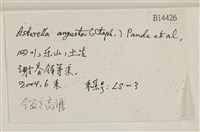 B14426
Asterella angusta (Steph.) Pandé et al.
四川, 乐山, 土法
谢香锦等采,
2004.6采 采集号: LS-3